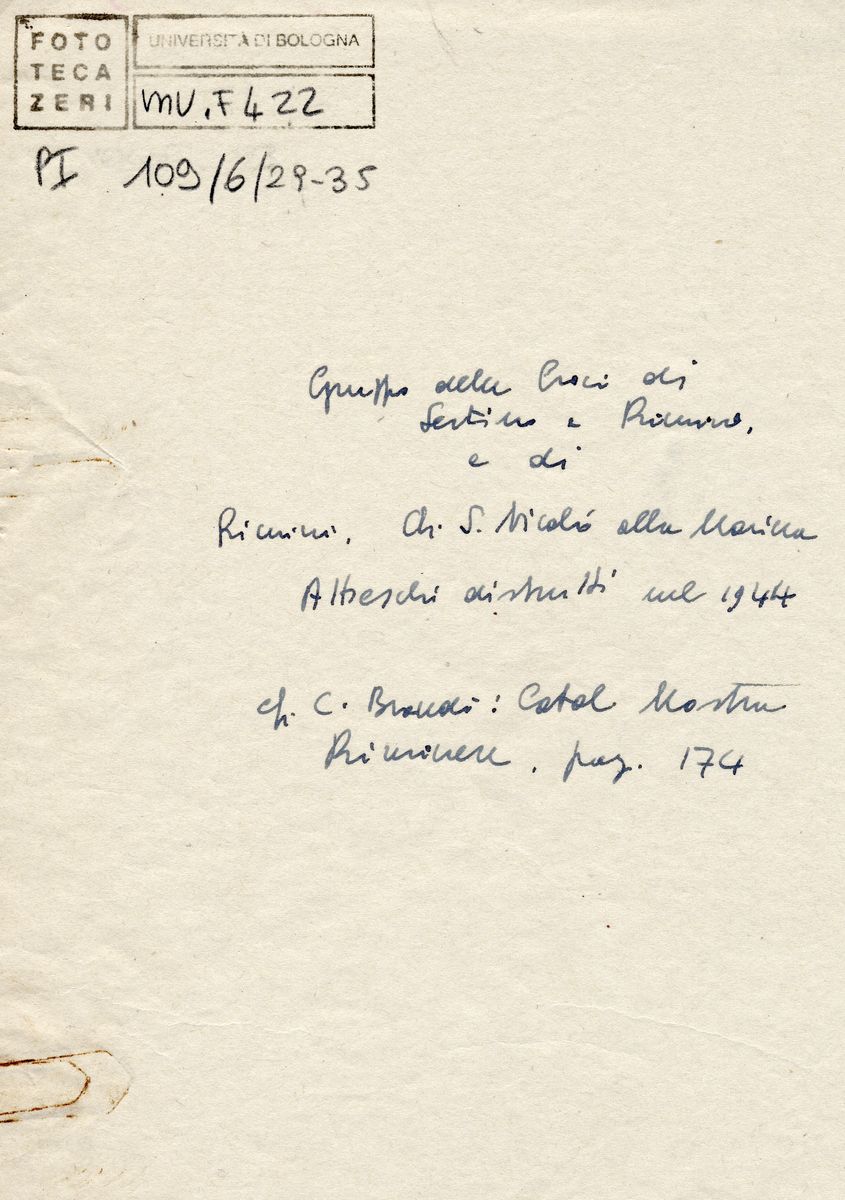 FOTO
TECA
ZERI
UNIVERSITÀ DI BOLOGNA
INV. F 422
PI 109/6/29-35
Gruppo delle Croci di
Sestino e Rimini,
e di
Rimini. Ch. S. Nicolò alla Marina
Affreschi distrutti nel 1944
cfr. C. Brandi: Catal Mostra
Riminese, pag. 174